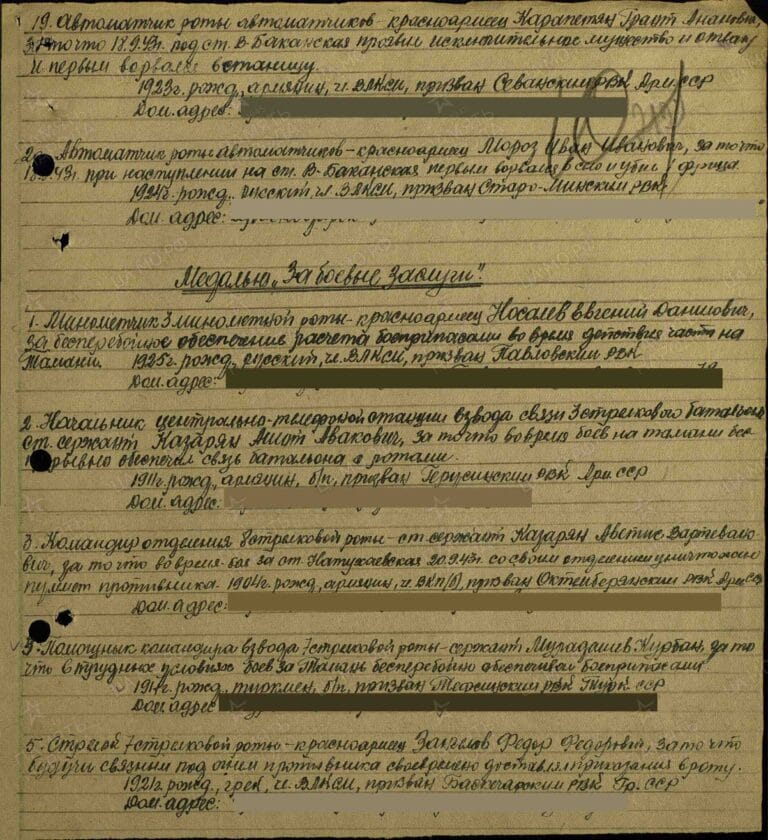 19. Автоматчик роты автоматчиков - красноармеец Карапетян Грант
за то что 18.9.43г. под ст. В-Баканская проявил исключительное мужество и отвагу
и первым ворвался в станицу.
1923г. рожд, армянин, чл. ВЛКСМ, призван Севанским РВК Арм. ССР
Дом. адрес:
Автоматчик роты автоматчиков - красноармеец Мороз Иван Иванович, за то что
43г. при наступлении на ст. В-Баканская первым ворвался в село и убил 1 фрица
1924г. рожд, русский, чл. ВЛКСМ, призван Старо-Минским РВК
Дом. адрес:
Медалью „За боевые заслуги".
1. Минометчик 3 минометной роты - красноармеец Носалев Евгений Данилович,
за бесперебойное обеспечение расчета боеприпасами во время действия части на
Тамани. 1925г. рожд, русский, чл. ВЛКСМ, призван Павловским РВК
Дом. адрес:
2. Начальник центрально-телефонной станции взвода связи 3 стрелкового батальона
ст. сержант Казарян Ашот Авакович, за то что во время боев на Тамани бес
рывно обеспечил связь батальона с ротами.
1911г. рожд, армянин, б/п, призван Герусинским РВК Арм. ССР
Дом. адрес:
3. Командир отделения 8 стрелковой роты - ст. сержант Казарян Аветис Вартевано-
вич, за то что во время боя за ст. Натухаевская 20.9.43г. со своим отделением уничтожил
пулмет противника. 1904г. рожд, армянин, чл. ВКП(б), призван Октемберянским РВК Арм. ССР
Дом. адрес:
Помощник командира взвода 7 стрелковой роты - сержант Мурадалиев Курбан, за то
что в трудных условиях боев за Тамань бесперебойно обеспечивал боеприпасами
1917г. рожд, туркмен, б/п, призван РВК Турк. ССР
Дом. адрес
5. Стрелок 7 стрелковой роты - красноармеец Федор Федорович, за то что
будучи связным под огнем противника своевременно доставлял приказания в роту.
1921г. рожд, грек, чл. ВЛКСМ, призван РВК Гр. ССР
Дом. адрес: